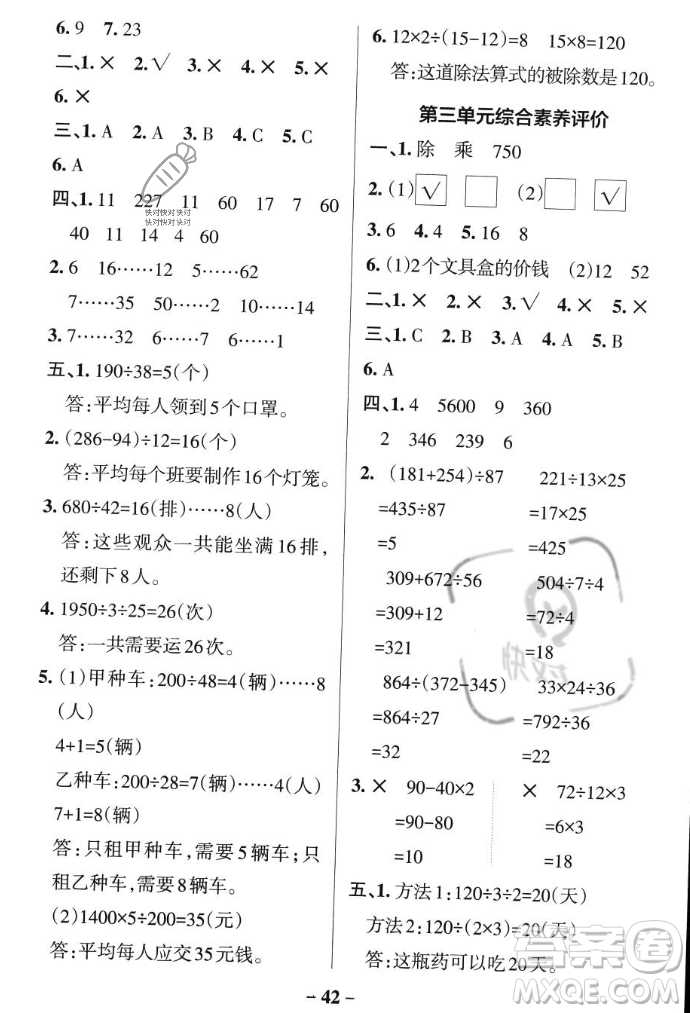 6. 9 7. 23
二、1. × 2. √ 3. × 4. × 5. ×
6. ×
三、1. A 2. A 3. B 4. C 5. C
6. A
四、1. 11 227 11 60 17 7 60
40 11 14 4 60
快对快对快对
快对快对快对
2. 6 16……12 5……62
7……35 50……2 10……14
3. 7……32 6……7 6……1
五、1. 190÷38=5(个)
答:平均每人领到5个口罩。
2. (286-94)÷12=16(个)
答:平均每个班要制作16个灯笼。
3. 680÷42=16(排)……8(人)
答:这些观众一共能坐满16排,
还剩下8人。
4. 1950÷3÷25=26(次)
答:一共需要运26次。
5. (1)甲种车:200÷48=4(辆)……8
(人)
4+1=5(辆)
乙种车:200÷28=7(辆)……4(人)
7+1=8(辆)
答:只租甲种车,需要5辆车;只
租乙种车,需要8辆车。
(2)1400×5÷200=35(元)
答:平均每人应交35元钱。
6. 12×2÷(15-12)=8 15×8=120
答:这道除法算式的被除数是120。
第三单元综合素养评价
一、1. 除 乘 750
2. (1) √ (2) √
3. 6 4. 4 5. 16 8
6. (1)2个文具盒的价钱 (2)12 52
二、1. × 2. × 3. √ 4. × 5. ×
三、1. C 2. B 3. A 4. C 5. B
6. A
四、1. 4 5600 9 360
2 346 239 6
2. (181+254)÷87 221÷13×25
=435÷87 =17×25
=5 =425
309+672÷56 504÷7÷4
=309+12 =72÷4
=321 =18
864÷(372-345) 33×24÷36
=864÷27 =792÷36
=32 =22
3. × 90-40×2 × 72÷12×3
=90-80 =6×3
=10 =18
五、1. 方法1:120÷3÷2=20(天)
方法2:120÷(2×3)=20(天)
答:这瓶药可以吃20天。
- 42 -
答案圈